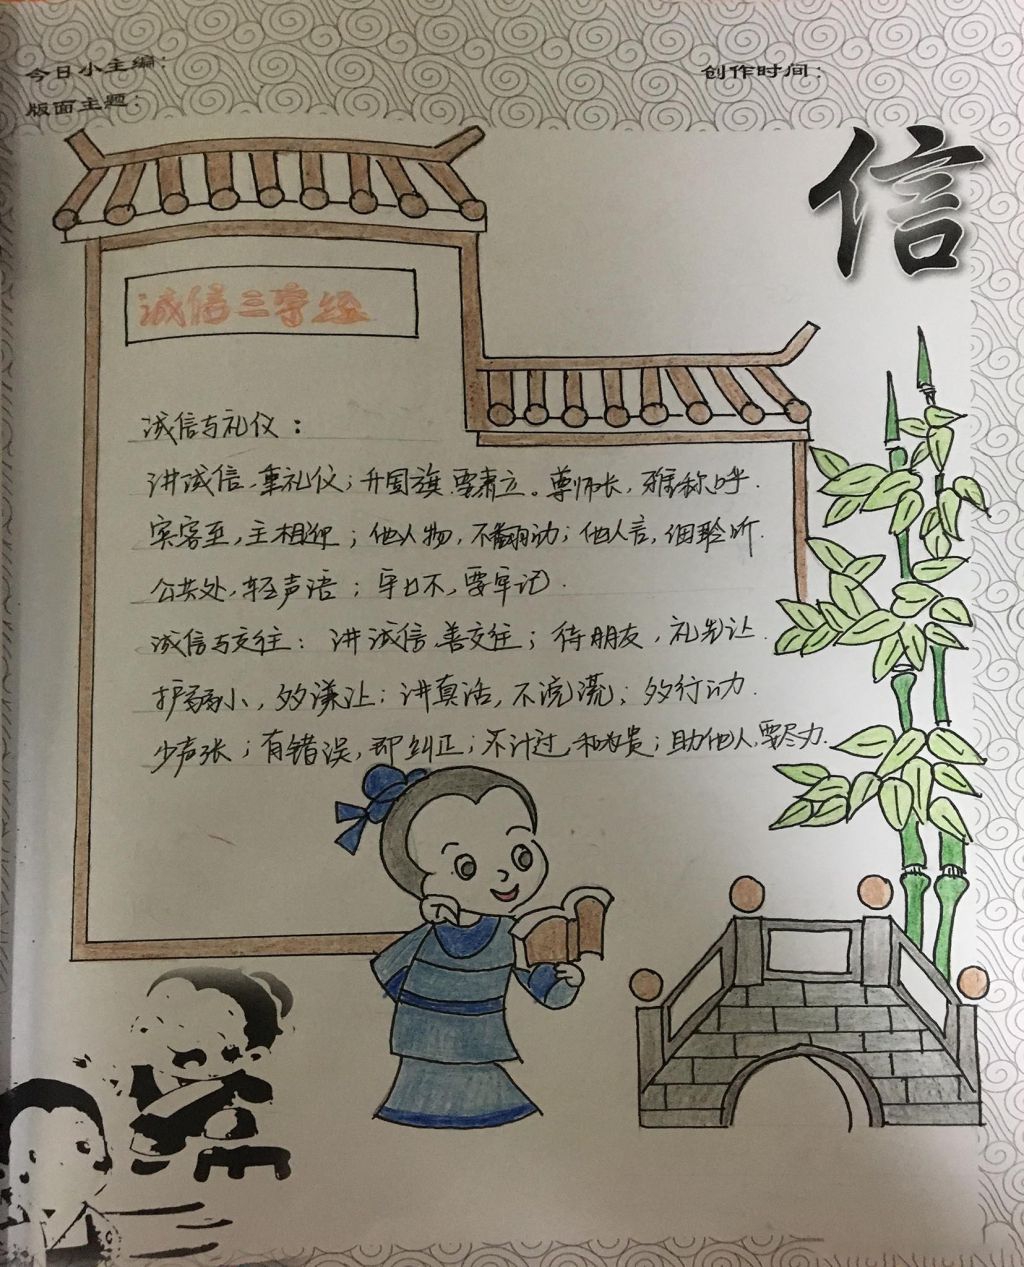 今日小主编：
创作时间：
版面主题：
信
诚信三字经
诚信与礼仪：
讲诚信，重礼仪；升国旗，要肃立。尊师长，雅称呼．
宾客至，主相迎；他人物，不翻动；他人言，细聆听．
公共处，轻声语；牢记，要牢记．
诚信与交往：讲诚信，善交往；待朋友，礼先让．
护弱小，效谦让；讲真话，不流流；效行动．
少声张；有错误，即纠正；不计过，和为贵；助他人，要尽力．